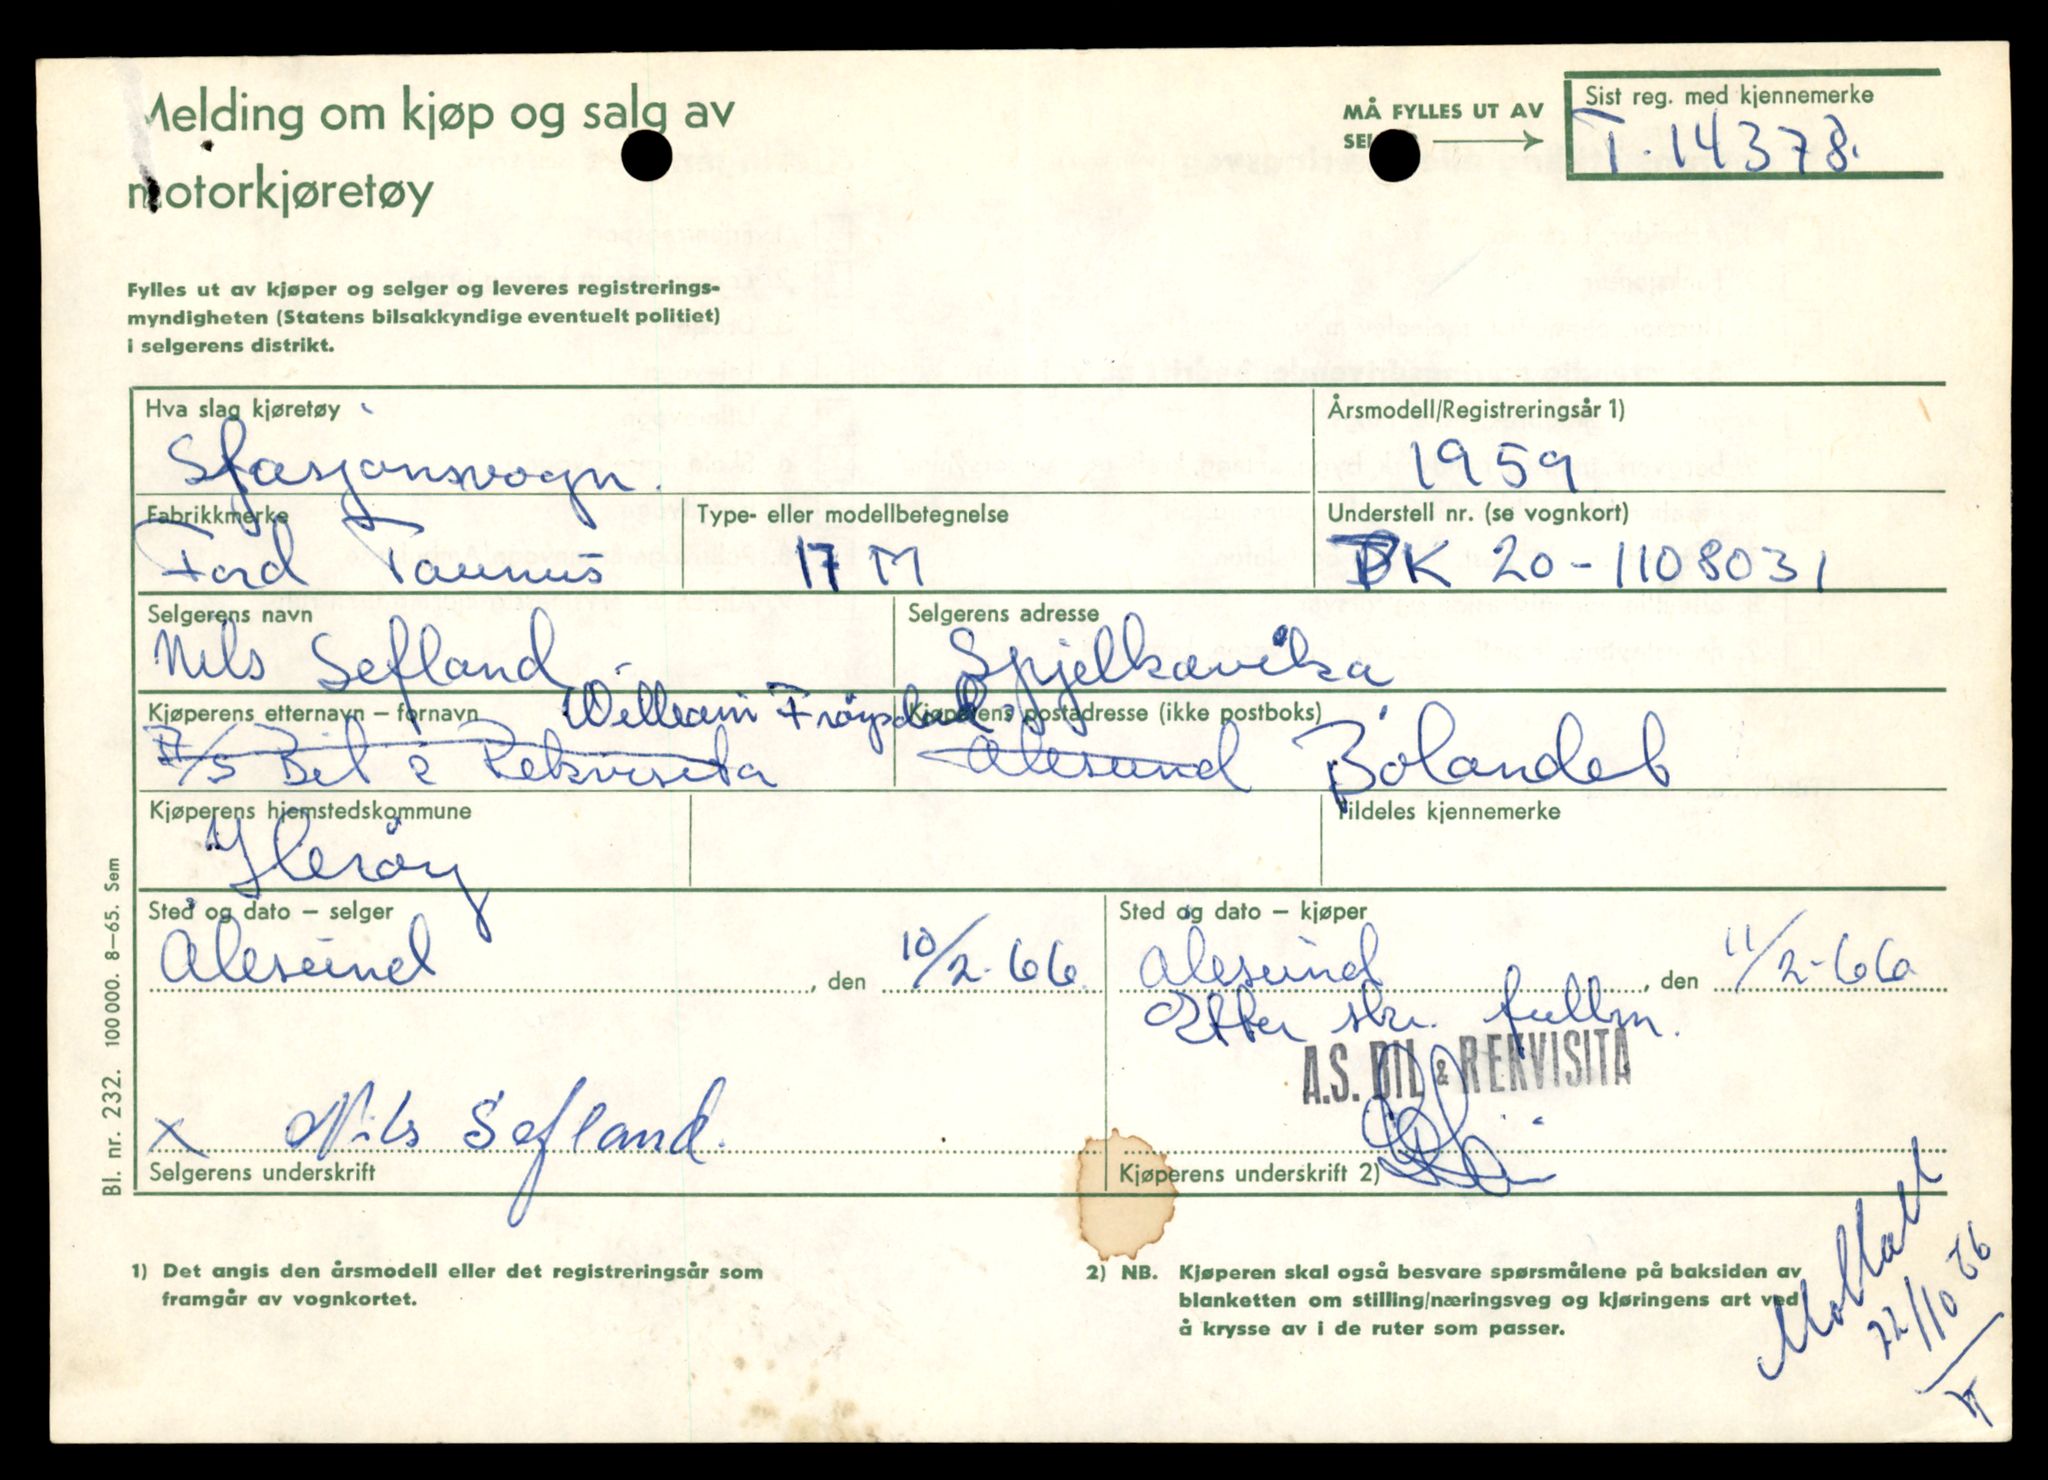 Melding om kjøp og salg av
motorkjøretøy
MÅ FYLLES UT AV
Sist reg. med kjennemerke
T-14378.
Fylles ut av kjøper og selger og leveres registrerings-
myndigheten (Statens bilsakkyndige eventuelt politiet)
i selgerens distrikt.
Hva slag kjøretøy
Årsmodell/Registreringsår 1)
Stasjonsvogn.
1959
Fabrikkmerke
Type- eller modellbetegnelse
Understell nr. (se vognkort)
Ford Taunus
17 M
BK 20-1108031
Selgerens navn
Selgerens adresse
Nils Sefland
Spjelkavika
Kjøperens etternavn – fornavn
William
Kjøperens postadresse (ikke postboks)
A/S Bil & Rekvisita
Ålesund
Kjøperens hjemstedskommune
Tildeles kjennemerke
Herøy
Sted og dato – selger
Sted og dato – kjøper
Ålesund, den 10/2-66
Ålesund, den 11/2-66
Etter skr. fullm.
A.S. BIL & REKVISITA
x Nils Sefland.
Selgerens underskrift
Kjøperens underskrift 2)
1) Det angis den årsmodell eller det registreringsår som
framgår av vognkortet.
2) NB. Kjøperen skal også besvare spørsmålene på baksiden av
blanketten om stilling/næringsveg og kjøringens art ved
å krysse av i de ruter som passer.
Mottatt
22/10 66
Bl. nr. 232. 100 000. 8–65. Sem